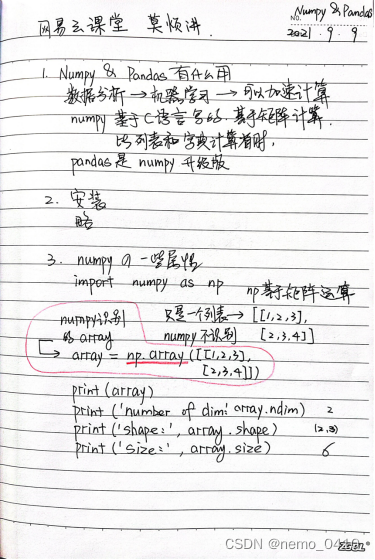 Numpy & Pandas
No.
网易云课堂 莫烦讲.
2021. 9. 9
1. Numpy & Pandas 有什么用
数据分析 → 机器学习 → 可以加速计算
numpy 基于C语言写的. 基于矩阵计算.
比列表和字典计算省时,
pandas是 numpy 升级版
2. 安装
略
3. numpy の一些属性
import numpy as np np基于矩阵运算
numpy识别
的array
只是一个列表→ [[1,2,3],
numpy不识别 [2,3,4]]
→ array = np.array([[1,2,3],
[2,3,4]])
print (array)
print ('number of dim: array.ndim) 2
print ('shape:', array.shape) (2,3)
print ('size:', array.size) 6
CSDN @nemo_0410